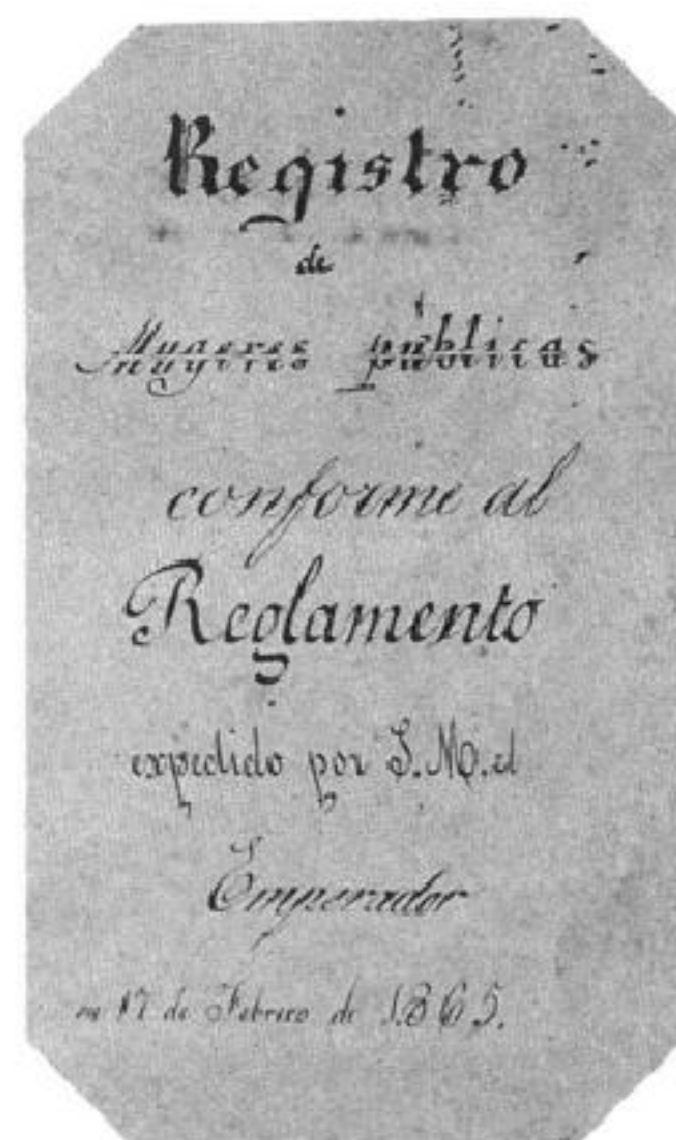 Registro
de
Mugeres públicas
conforme al
Reglamento
expedido por S.M. el
Emperador
en 17 de Febrero de 1865.